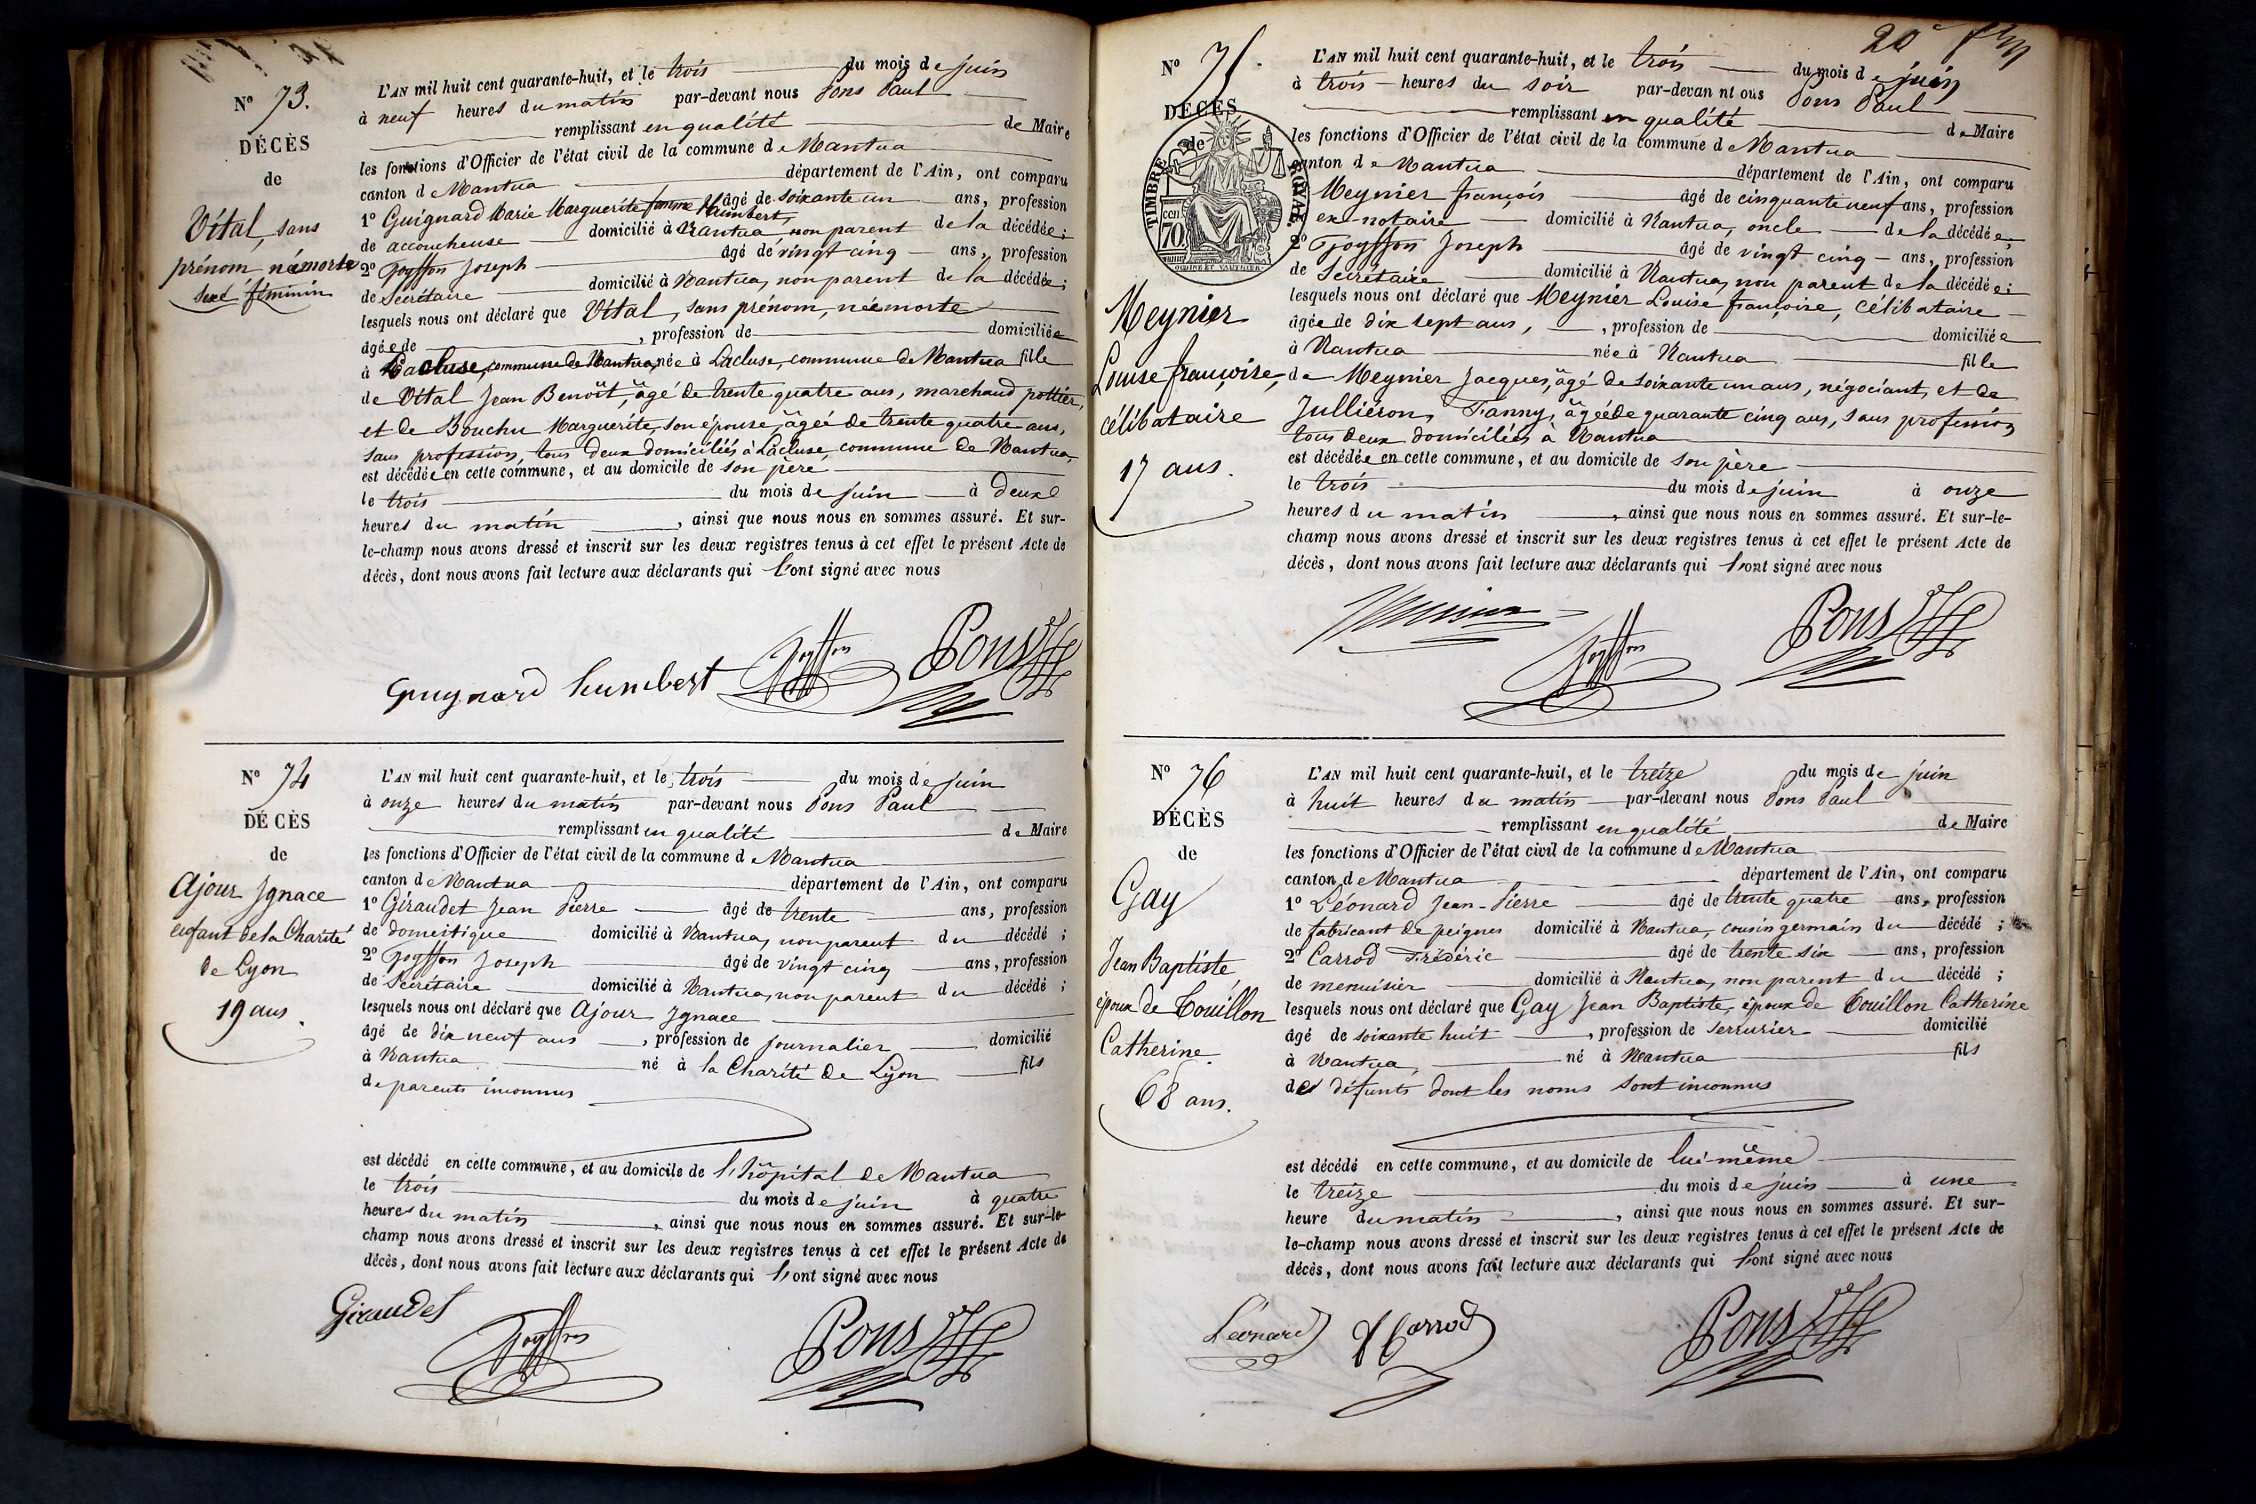 Nº 73.
DÉCÈS
de
Vital, sans
prénom, née morte
sexe féminin
L'AN mil huit cent quarante-huit, et le trois du mois de juin
à neuf heures du matin par-devant nous Pons Paul
remplissant en qualité de Maire
les fonctions d'Officier de l'état civil de la commune de Nantua
canton de Nantua département de l'Ain, ont comparu
1º Guignard Marie Marguerite femme Humbert, âgé de soixante un ans, profession
de accoucheuse domicilié à Nantua non parent de la décédée;
2º Goyffon Joseph âgé de vingt cinq ans, profession
de Secrétaire domicilié à Nantua, non parent de la décédée;
lesquels nous ont déclaré que Vital, sans prénom, née morte
âgée de , profession de domiciliée
à Lacluse, commune de Nantua, née à Lacluse, commune de Nantua fille
de Vital Jean Benoît, âgé de trente quatre ans, marchand pottier,
et de Bouchu Marguerite, son épouse, âgée de trente quatre ans,
sans profession, tous deux domiciliés à Lacluse, commune de Nantua,
est décédée en cette commune, et au domicile de son père
le trois du mois de juin à deux
heures du matin , ainsi que nous nous en sommes assuré. Et sur-
le-champ nous avons dressé et inscrit sur les deux registres tenus à cet effet le présent Acte de
décès, dont nous avons fait lecture aux déclarants qui l'ont signé avec nous
guignard humbert Goyffon Pons
Nº 74
DÉCÈS
de
Ajour Ignace
enfant de la Charité
de Lyon
19 ans.
L'AN mil huit cent quarante-huit, et le trois du mois de juin
à onze heures du matin par-devant nous Pons Paul
remplissant en qualité de Maire
les fonctions d'Officier de l'état civil de la commune de Nantua
canton de Nantua département de l'Ain, ont comparu
1º Giraudet Jean Pierre âgé de trente ans, profession
de domestique domicilié à Nantua, non parent du décédé ;
2º Goyffon Joseph âgé de vingt cinq ans, profession
de Secrétaire domicilié à Nantua, non parent du décédé ;
lesquels nous ont déclaré que Ajour Ignace
âgé de dix neuf ans , profession de journalier domicilié
à Nantua né à la Charité de Lyon fils
de parents inconnus
est décédé en cette commune, et au domicile de l'hôpital de Nantua
le trois du mois de juin à quatre
heures du matin , ainsi que nous nous en sommes assuré. Et sur-le-
champ nous avons dressé et inscrit sur les deux registres tenus à cet effet le présent Acte de
décès, dont nous avons fait lecture aux déclarants qui l'ont signé avec nous
Giraudet Goyffon Pons
20e
Nº 75.
DÉCÈS
de
TIMBRE ROYAL
70
Meynier
Louise françoise,
célibataire
17 ans.
L'AN mil huit cent quarante-huit, et le trois du mois de juin
à trois heures du soir par-devant nous Pons Paul
remplissant en qualité de Maire
les fonctions d'Officier de l'état civil de la commune de Nantua
canton de Nantua département de l'Ain, ont comparu
Meynier françois âgé de cinquante neuf ans, profession
ex-notaire domicilié à Nantua, oncle de la décédée;
2º Goyffon Joseph âgé de vingt cinq ans, profession
de Secrétaire domicilié à Nantua, non parent de la décédée;
lesquels nous ont déclaré que Meynier Louise françoise, célibataire
âgée de dix sept ans, , profession de domiciliée
à Nantua née à Nantua fille
de Meynier Jacques, âgé de soixante un ans, négociant, et de
Julliéron, Fanny, âgée de quarante cinq ans, sans profession
tous deux domiciliés à Nantua
est décédée en cette commune, et au domicile de son père
le trois du mois de juin à onze
heures du matin , ainsi que nous nous en sommes assuré. Et sur-le-
champ nous avons dressé et inscrit sur les deux registres tenus à cet effet le présent Acte de
décès, dont nous avons fait lecture aux déclarants qui l'ont signé avec nous
Goyffon Pons
Nº 76
DÉCÈS
de
Gay
Jean Baptiste,
époux de Touillon
Catherine.
68 ans.
L'AN mil huit cent quarante-huit, et le treize du mois de juin
à huit heures du matin par-devant nous Pons Paul
remplissant en qualité de Maire
les fonctions d'Officier de l'état civil de la commune de Nantua
canton de Nantua département de l'Ain, ont comparu
1º Léonard Jean-Pierre âgé de trente quatre ans, profession
de fabricant de peignes domicilié à Nantua, cousin germain du décédé ;
2º Carrod Frédéric âgé de trente six ans, profession
de menuisier domicilié à Nantua, non parent du décédé ;
lesquels nous ont déclaré que Gay Jean Baptiste, époux de Touillon Catherine
âgé de soixante huit , profession de serrurier domicilié
à Nantua, né à Nantua fils
des défunts dont les noms sont inconnus
est décédé en cette commune, et au domicile de lui-même
le treize du mois de juin à une
heure du matin , ainsi que nous nous en sommes assuré. Et sur-
le-champ nous avons dressé et inscrit sur les deux registres tenus à cet effet le présent Acte de
décès, dont nous avons fait lecture aux déclarants qui l'ont signé avec nous
Léonard f Carrod Pons